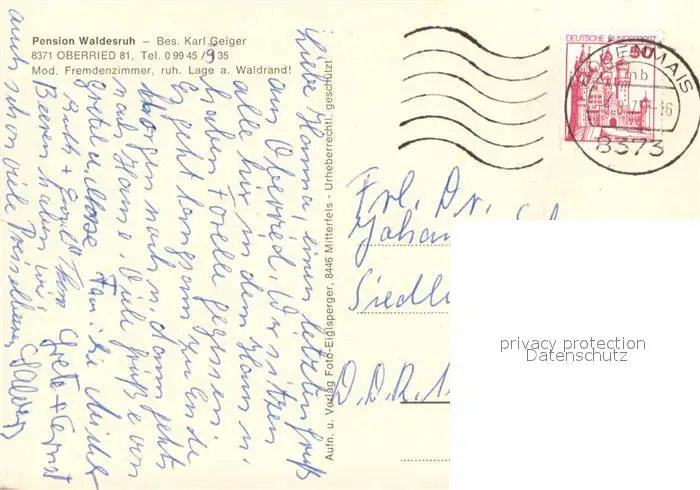 Pension Waldesruh – Bes. Karl Geiger
8371 OBERRIED 81, Tel. 0 99 45 / 9 35
Mod. Fremdenzimmer, ruh. Lage a. Waldrand!
Liebe Hanna, einen letzten Gruß
aus Oberried. Wir sitzen
alle hier in dem Haus u.
haben Forelle gegessen.
Es geht langsam zu Ende
Morgen noch u. dann gehts
nach Hause. Viele Grüße von
Fam.
Ruth +
Grete + Ernst
Beeren haben wir
auch schon viele
Aufn. u. Verlag Foto-Eiglsperger, 8446 Mitterfels - Urheberrechtl. geschützt
DEUTSCHE BUNDESPOST
50
BODENMAIS
mb
8373
Frl. Dr.
Siedl
D.D.R.
privacy protection
Datenschutz